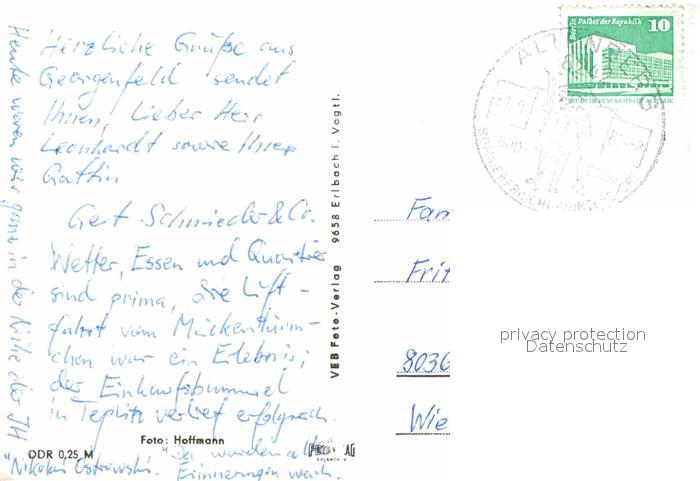 Herzliche Grüße aus
Georgenfeld sendet
Ihnen, lieber Herr
Leonhardt sowie Ihrer
Gattin
Gert Schmieder & Co.
Wetter, Essen und Quartier
sind prima, die Lift-
fahrt vom Mückentürm-
chen war ein Erlebnis;
der Einkaufsbummel
in Teplitz verlief erfolgreich.
Heute waren wir ganz in der Nähe der JH
"Nikolai Ostrowski." Da wurden alte
Erinnerungen wach.
Foto: Hoffmann
DDR 0,25 M
VEB Foto-Verlag 9658 Erlbach i. Vogtl.
Berlin Palast der Republik
10
DEUTSCHE DEMOKRATISCHE REPUBLIK
ALTENBERG
Fam
Frit
8036
Wie
privacy protection
Datenschutz